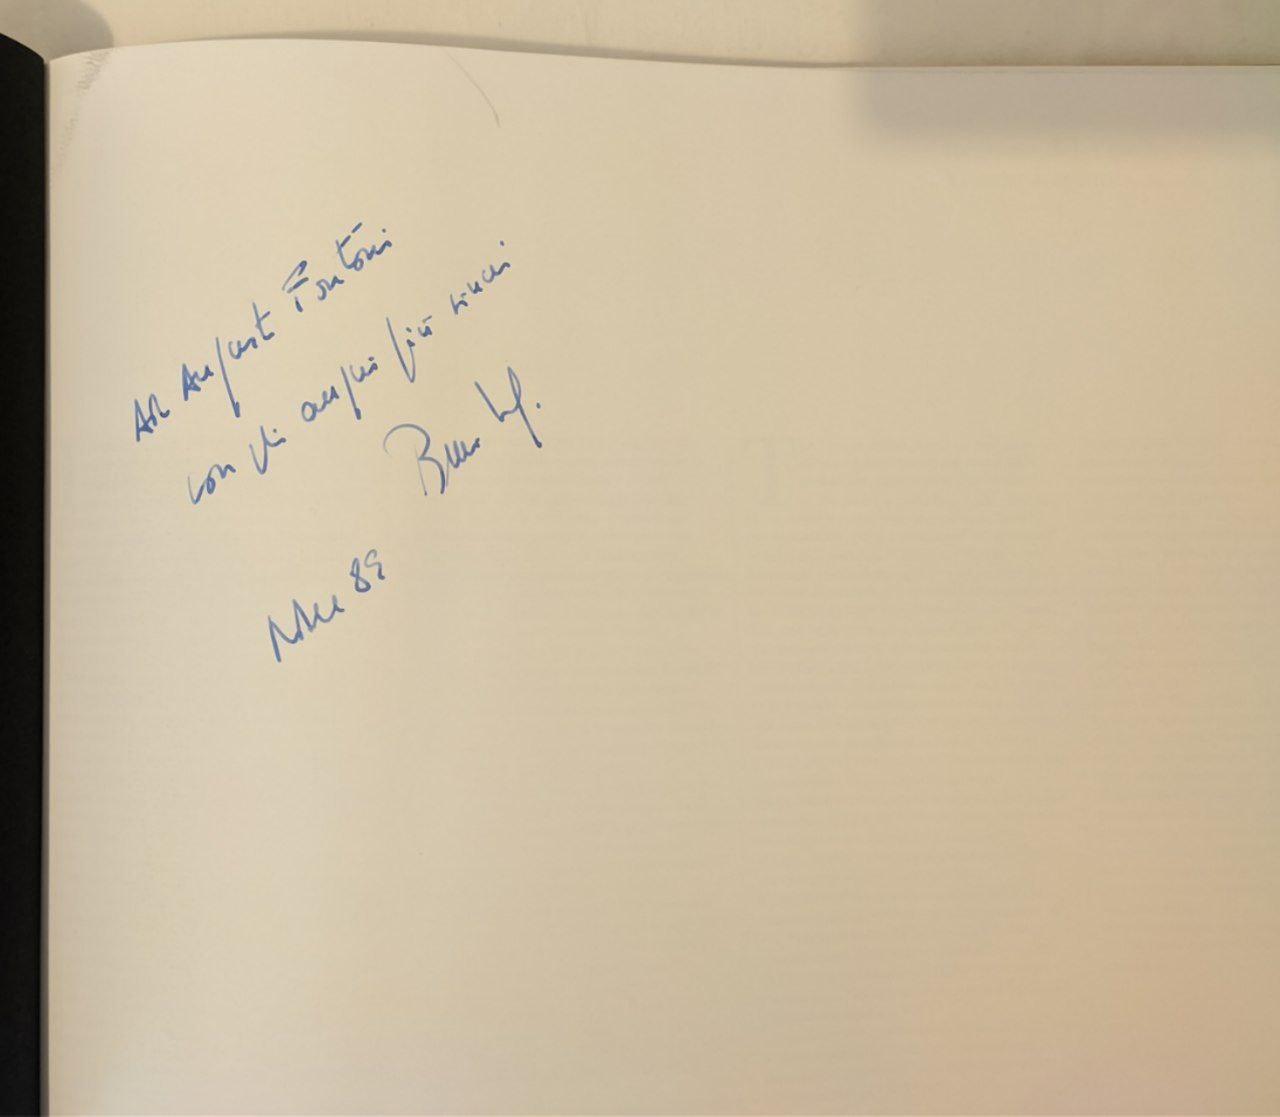 Ad Augusto Fantoni
con gli auguri più sinceri
Bruno
89